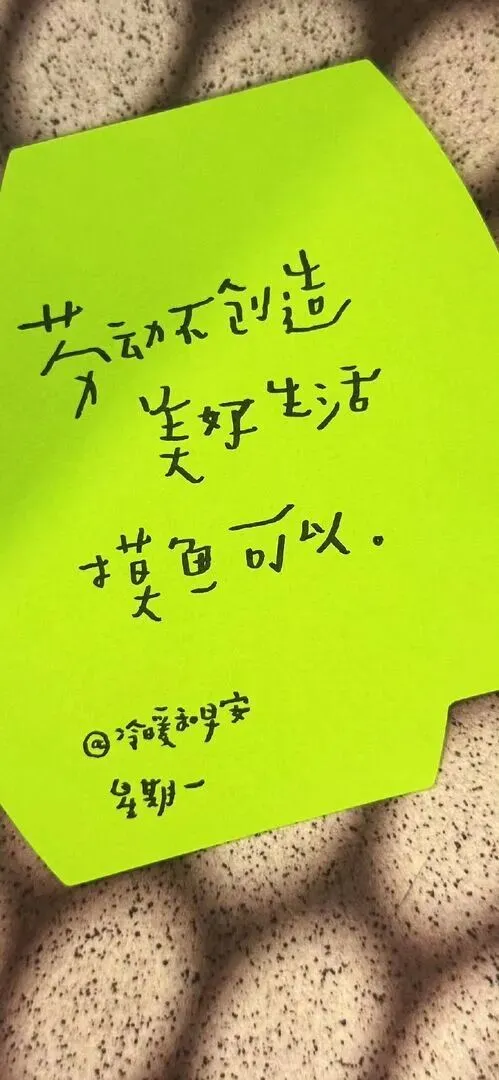 劳动不创造
美好生活
摸鱼可以。
@冷暖和早安
星期一